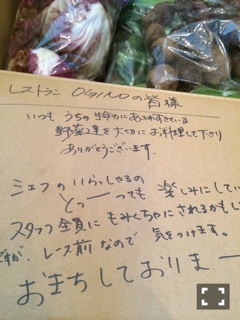 レストラン OGINOの皆様
いつも うちの
野菜達を大切に お料理して下さり
ありがとうございます.
シェフの いらっしゃるの
とっーっても 楽しみにしてい
スタッフ全員に もみくちゃに されるかもし
ですが、レース前なので 気をつけます。
おまちしておりまー